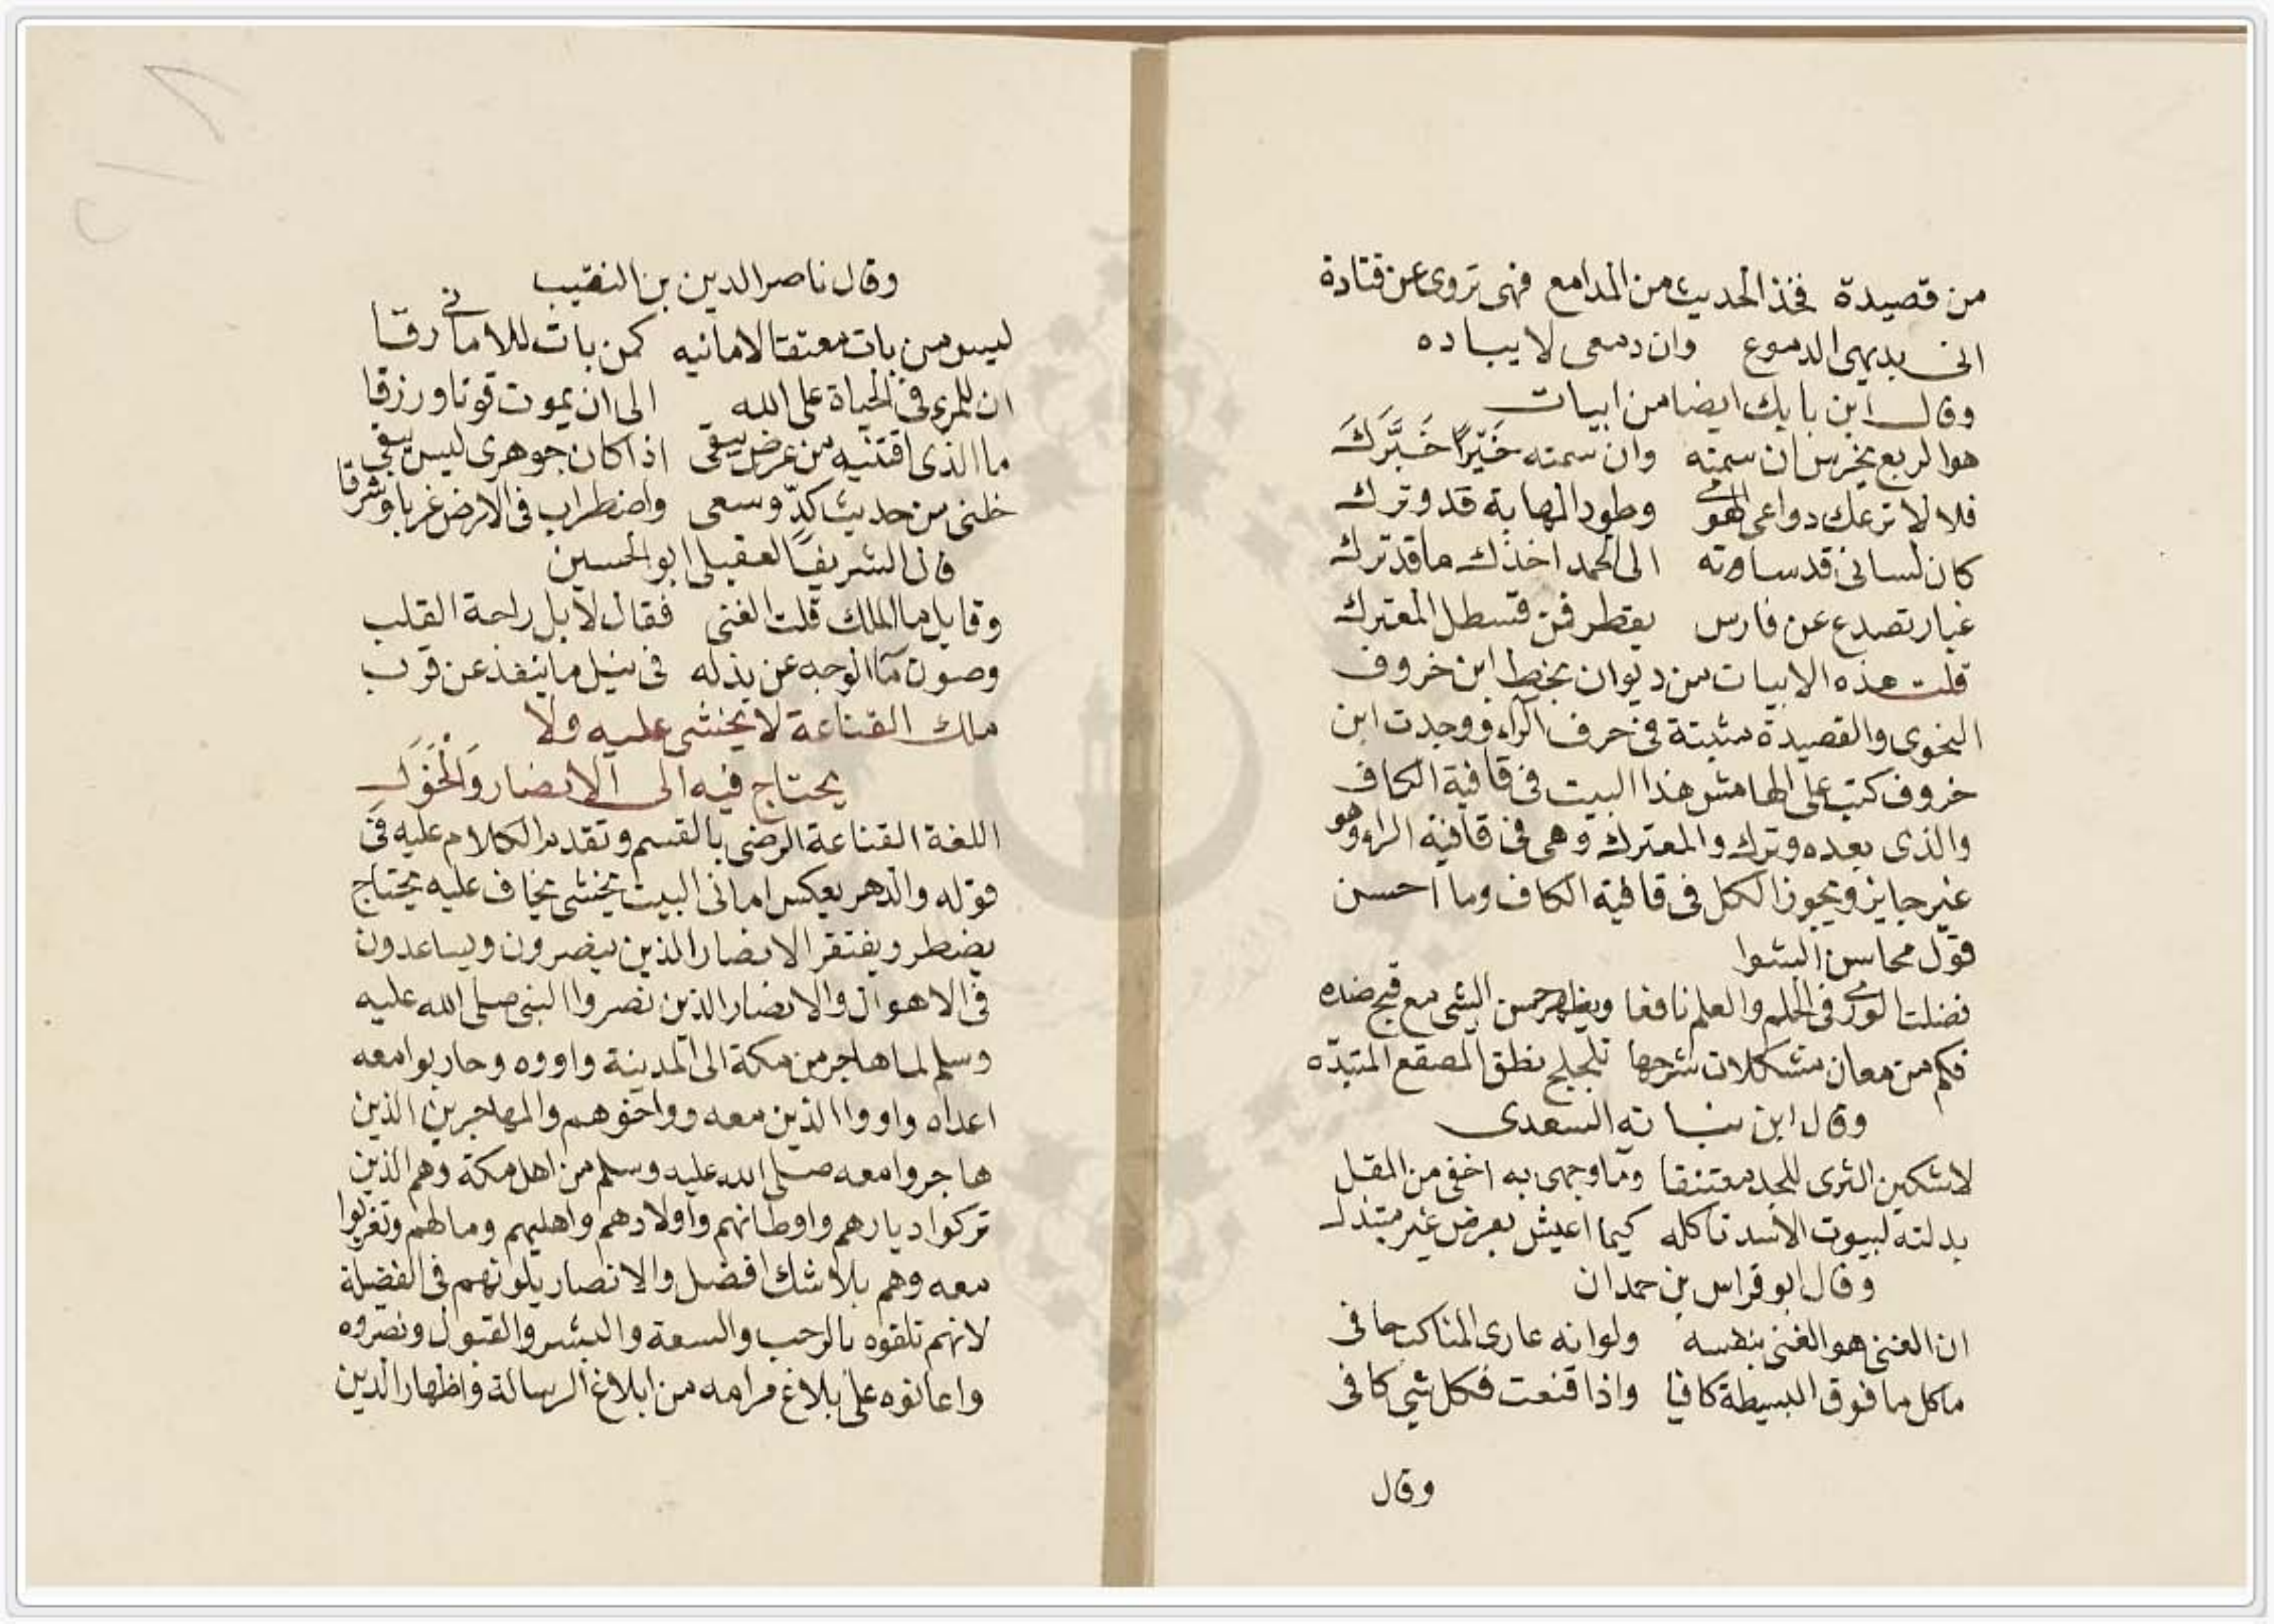 من قصيدة فخذ الحديث من المدامع فهى تروى عن قتادة
انى بديهى الدموع وان دمعى لا يباده
وقال ابن بابك ايضا من ابيات
هو الربع يخرس ان سمته وان سمته خَيّرًا خَبَّرَكَ
فلا لا ترعك دواعى الهوى وطود المهابة قد وترك
كان لسانى قد ساوته الى الحمد اخذك ما قد ترك
غبار تصدع عن فارس يقطر فى قسطل المعترك
قلت هذه الابيات من ديوان بخط ابن خروف
النحوى والقصيدة مثبتة فى حرف الراء ووجدت ابن
خروف كتب على الهامش هذا البيت فى قافية الكاف
والذى بعده وترك والمعترك وهى فى قافية الراء وهو
غير جايز ويجوز الكل فى قافية الكاف وما احسن
قول محاسن الشوا
فضلت الورى فى الحلم والعلم نافعا ويظهر حسن الشى مع قبح ضده
فكم من معان مشكلات شرحها تلجلج نطق المصقع المتبدّه
وقال ابن نباته السعدى
لاشكين الثرى للمجد معتنقا وما وجهى به اخفى من المقل
بدلته لبيوت الاسد تاكله كيما اعيش بعرض غير مبتذل
وقال ابو فراس بن حمدان
ان الغنى هو الغنى بنفسه ولو انه عارى المناكب حافى
ما كل ما فوق البسيطة كافيا واذا قنعت فكل شي كافى
وقال
وقال ناصر الدين بن النقيب
ليس من بات معتقا لامانيه كمن بات للامانى رقا
ان للمرء فى الحياة على الله الى ان يموت قوتا ورزقا
ما الذى اقتنيه من عرض يبقى اذا كان جوهرى ليس يبقى
خلنى من حديث كدّ وسعى واضطراب فى الارض غربا وشرقا
قال الشريف العقيلى ابو الحسين
وقايل ما الملك قلت الغنى فقال لا بل راحة القلب
وصون مآ الوجه عن بذله فى نيل ما ينفذ عن قرب
ملك القناعة لا يخشى عليه ولا
يحتاج فيه الى الانصار وَالْخَوَلِ
اللغة القناعة الرضى بالقسم وتقدم الكلام عليه فى
قوله والدهر يعكس امانى البيت يخشى يخاف عليه يحتاج
يضطر ويفتقر الانصار الذين ينصرون ويساعدون
فى الاهوال والانصار الذين نصروا النبى صلى الله عليه
وسلم لما هاجر من مكة الى المدينة واووه وحاربوا معه
اعداه واووا الذين معه وواخوهم والمهاجرين الذين
هاجروا معه صلى الله عليه وسلم من اهل مكة وهم الذين
تركوا ديارهم واوطانهم واولادهم واهليهم وما لهم وتغربوا
معه وهم بلا شك افضل والانصار يلونهم فى الفضيلة
لانهم تلقوه بالرحب والسعة والبشر والقبول ونصروه
واعانوه على بلاغ مرامه من ابلاغ الرسالة واظهار الدين